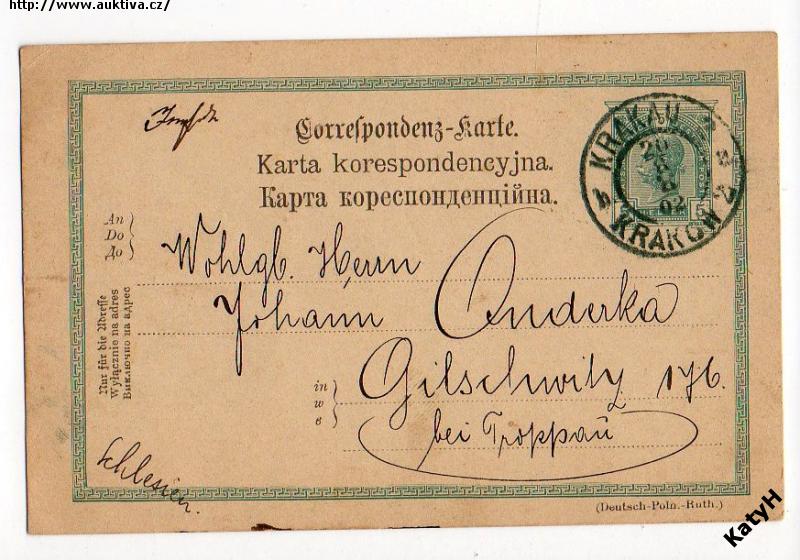 http://www.auktiva.cz/
Correspondenz-Karte.
Karta korespondencyjna.
Карта кореспонденційна.
KRAKAU
20
02
KRAKÓW
5
An
Do
До
Wohlgb. Herrn
Johann Onderka
Nur für die Adresse
Wyłącznie na adres
Виключно на адрес
in
w
в
Gilschwitz 176.
bei Troppau
Schlesien.
(Deutsch-Poln.-Ruth.)
KatyH